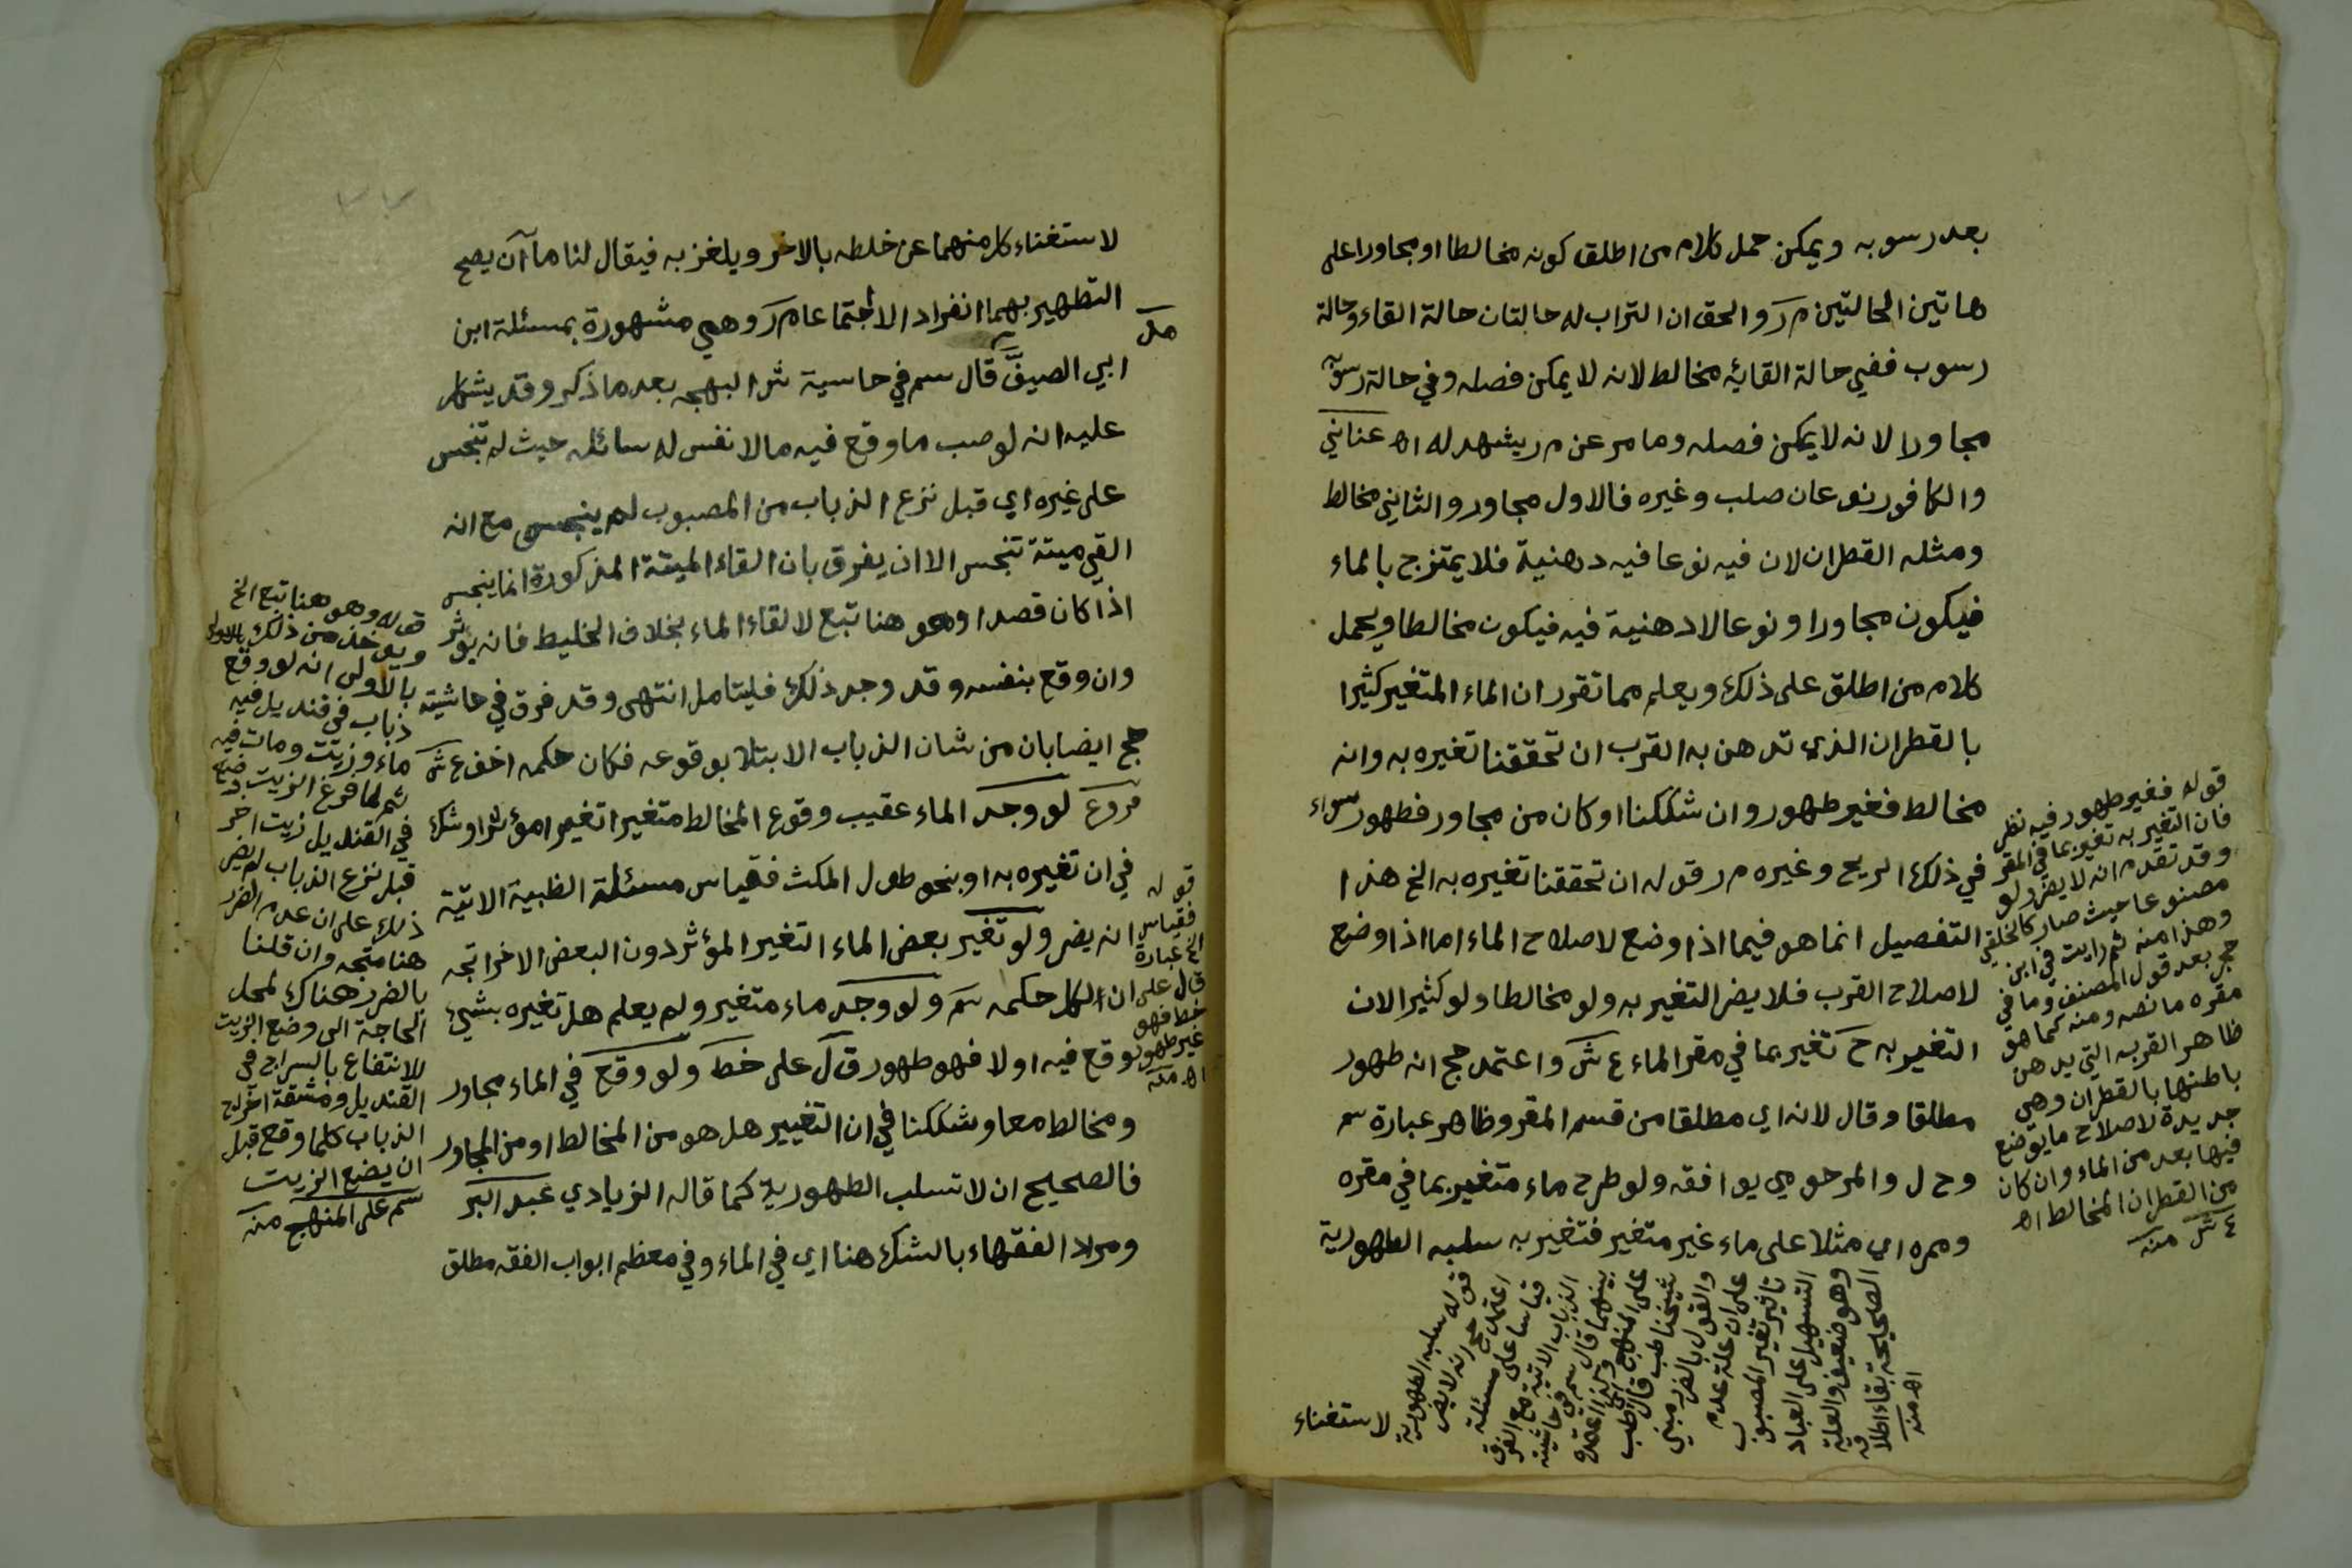 بعد رسوبه ويمكن حمل كلام من اطلق كونه مخالطا او مجاورا على
هاتين الحالتين م ر والحق ان التراب له حالتان حالة القاء وحالة
رسوب ففي حالة القائه مخالط لانه لا يمكن فصله وفي حالة رسوبه
مجاورا لانه لا يمكن فصله وما مر عن م ر يشهد له اه عناني
والكافور نوعان صلب وغيره فالاول مجاور والثاني مخالط
ومثله القطران لان فيه نوعا فيه دهنية فلا يمتزج بالماء
فيكون مجاورا ونوعا لا دهنية فيه فيكون مخالطا ويحمل
كلام من اطلق على ذلك ويعلم مما تقرر ان الماء المتغير كثيرا
بالقطران الذي تدهن به القرب ان تحققنا تغيره به وانه
مخالط فغير طهور وان شككنا او كان من مجاور فطهور سواء
في ذلك الريح وغيره م ر قوله ان تحققنا تغيره به الخ هذا
التفصيل انما هو فيما اذا وضع لاصلاح الماء اما اذا وضع
لاصلاح القرب فلا يضر التغير به ولو مخالطا ولو كثيرا لان
التغير به ح تغير بما في مقر الماء ع ش واعتمد حج انه طهور
مطلقا وقال لانه اي مطلقا من قسم المقر وظاهر عبارة سم
وح ل والمرحومي يوافقه ولو طرح ماء متغير بما في مقره
وممره اي مثلا على ماء غير متغير فتغير به سلبه الطهورية
لاستغناء
قوله فغير طهور فيه نظر
فان التغير به تغير بما في المقر
وقد تقدم انه لا يضر ولو
مصنوعا حيث صار كالخلقي
وهذا منه ثم رايت في ابن
حجر بعد قول المصنف وما في
مقره ما نصه ومنه كما هو
ظاهر القرب التي يدهن
باطنها بالقطران وهي
جديدة لاصلاح ما يوضع
فيها بعد من الماء وان كان
من القطران المخالط اه
ع ش منه
قوله سلبه الطهورية
اعتمد حج انه لا يضر
قياسا على مسئلة
الذباب الاتية مع الفرق
بينهما قال سم في حاشيته
على المنهج وبهذا اعتمده
شيخنا طب قال طب
والقول بالضرر مبني
على ان علة عدم
تاثير تغير المصبوب
التسهيل على العباد
وهو ضعيف والعلة
الصحيحة بقاء اطلاقه
اه منه
لاستغناء كل منهما عن خلطه بالاخر ويلغز به فيقال لنا ما آن يصح
التطهير بهما انفرادا لا اجتماعا م ر وهي مشهورة بمسئلة ابن
ابي الصيف قال سم في حاسية شر البهجه بعد ما ذكر وقد يشكل
عليه انه لو صب ما وقع فيه ما لا نفس له سائله حيث لم تنجس
على غيره اي قبل نزع الذباب من المصبوب لم ينجس مع انه
القي ميتة تنجس الا ان يفرق بان القاء الميتة المذكورة انما ينجس
اذا كان قصدا وهو هنا تبع لالقاء الماء بخلاف الخليط فانه يؤثر
وان وقع بنفسه وقد وجد ذلك فليتامل انتهى وقد فرق في حاشيته
حج ايضا بان من شان الذباب الابتلا بوقوعه فكان حكمه اخف ع ش
فروع لو وجد الماء عقيب وقوع المخالط متغيرا تغيرا مؤثرا وشك
في ان تغيره به او بنحو طول المكث فقياس مسئلة الظبية الاتية
انه يضر ولو تغير بعض الماء التغير المؤثر دون البعض الاخر اتجه
ان لكل حكمه سم ولو وجد ماء متغير ولم يعلم هل تغيره بشيئ
وقع فيه اولا فهو طهور ق ل على خط ولو وقع في الماء مجاور
ومخالط معا وشككنا في ان التغيير هل هو من المخالط او من المجاور
فالصحيح ان لا تسلب الطهورية كما قاله الزيادي عبد البر
ومراد الفقهاء بالشك هنا اي في الماء وفي معظم ابواب الفقه مطلق
قوله وهو هنا تبع الخ
ويؤخذ من ذلك بالاولى
بالاولى انه لو وقع
ذباب في قنديل فيه
ماء وزيت ومات فيه
ثم لما فرغ الزيت وضع
في القنديل زيت اخر
قبل نزع الذباب لم يضر
ذلك على ان عدم الضرر
هنا متجه وان قلنا
بالضرر هناك لمحل
الحاجة الى وضع الزيت
للانتفاع بالسراج في
القنديل ومشقة اخراج
الذباب كلما وقع قبل
ان يضع الزيت
سم على المنهج منه
قوله
فقياس
الخ عبارة
ق ل على
خط فهو
غير طهور
اه منه